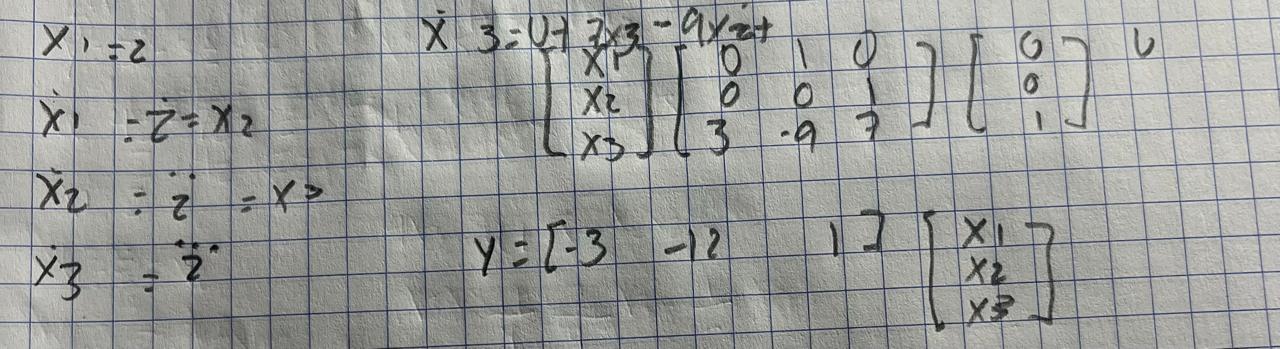 x1 = z
ẋ1 = ż = x2
ẋ2 = z̈ = x3
ẋ3 = z⃛
ẋ3 = U + 7x3 - 9x2 +
[x1 x2 x3] [0 1 0 0 0 1 3 -9 7] [0 0 1] U
y = [-3 -12 1] [x1 x2 x3]